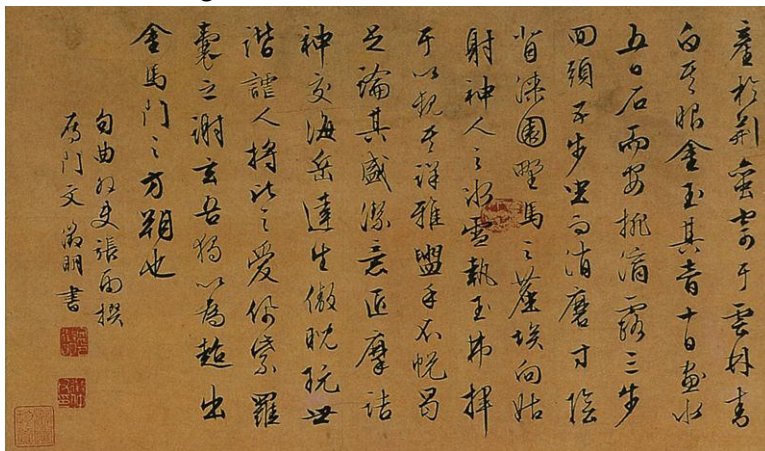 產於荊蠻寄于雲林青
白其眼金玉其音十日畫水
五日石而安排滴露三步
回頭五步坐而消磨寸陰
背漆園野馬之塵埃向姑
射神人之冰雪執玉拂揮
于以觀其詳雅盥手不帨曷
足論其盛潔意匠摩詰
神交海岳達生傲睨玩世
諧謔人將比之愛佩紫羅
囊之謝玄吾獨以為超出
金馬門之方朔也
句曲外史張雨撰
雁門文徵明書